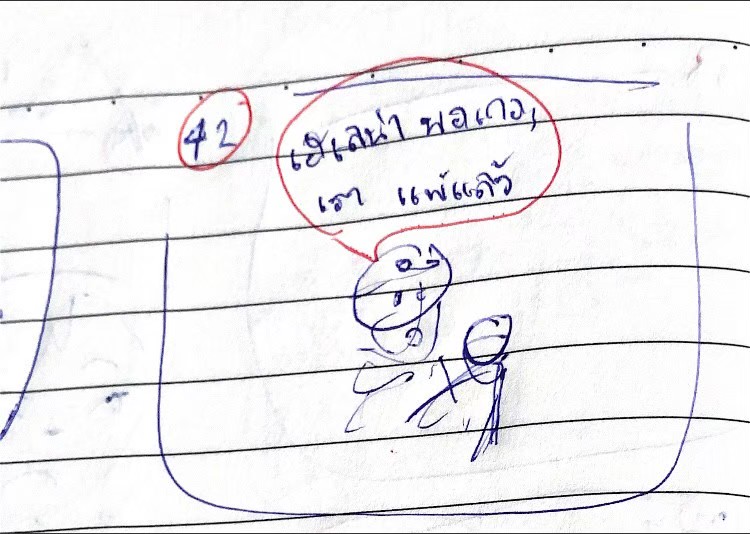 42
เฮเลน่า พอเถอะ,
เรา แพ้แล้ว